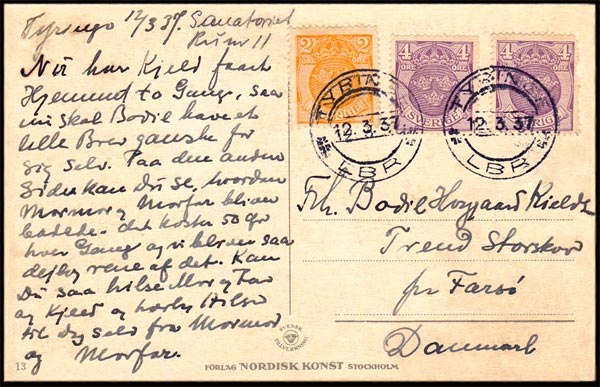 Tyringe 12/3 37. Sanatoriet
Rum 11
Nu har Kjeld faaet
Hjemmef to Gang, saa
nu skal Bodil have et
lille Brev ganske for
sig selv. Paa den anden
Side kan Du se, hvordan
Mormor og Morfar bliver
badede. det koster 50 Øre
hver Gang og vi bliver saa
dejlig rene af det. Kan
Du saa hilse Mor og Far
og Kjeld og kærlig Hilsen
til dig selv fra Mormor
og Morfar.
2 ÖRE SVERIGE
4 ÖRE SVERIGE
4 ÖRE SVERIGE
TYRINGE 12.3.37 LBR
TYRINGE 12.3.37 LBR
Frk. Bodil Højgaard Kjelds
Trend Storskov
pr Farsö
Danmark
SVENSK TILLVERKNING
13
FÖRLAG NORDISK KONST STOCKHOLM